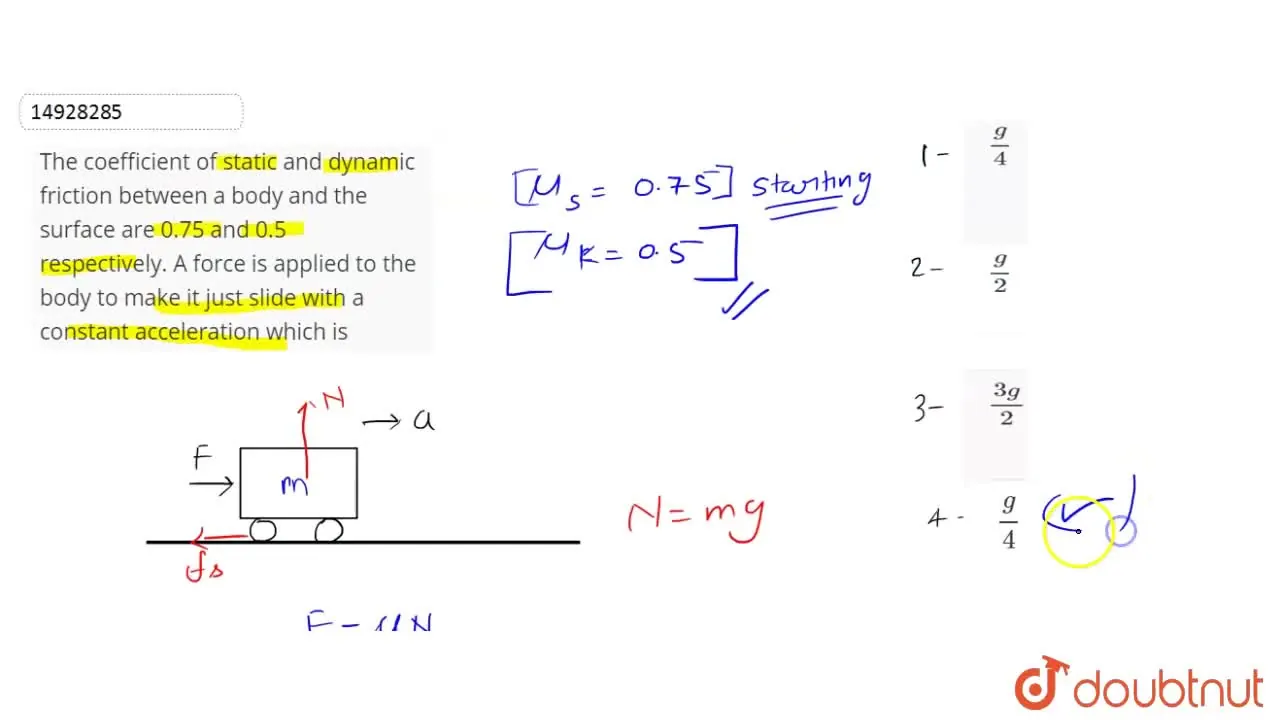 14928285
The coefficient of static and dynamic
friction between a body and the
surface are 0.75 and 0.5
respectively. A force is applied to the
body to make it just slide with a
constant acceleration which is
[μs = 0.75] starting
[μK = 0.5]
N
→ a
F
m
fs
N = mg
F - μN
1- g/4
2- g/2
3- 3g/2
4- g/4
doubtnut